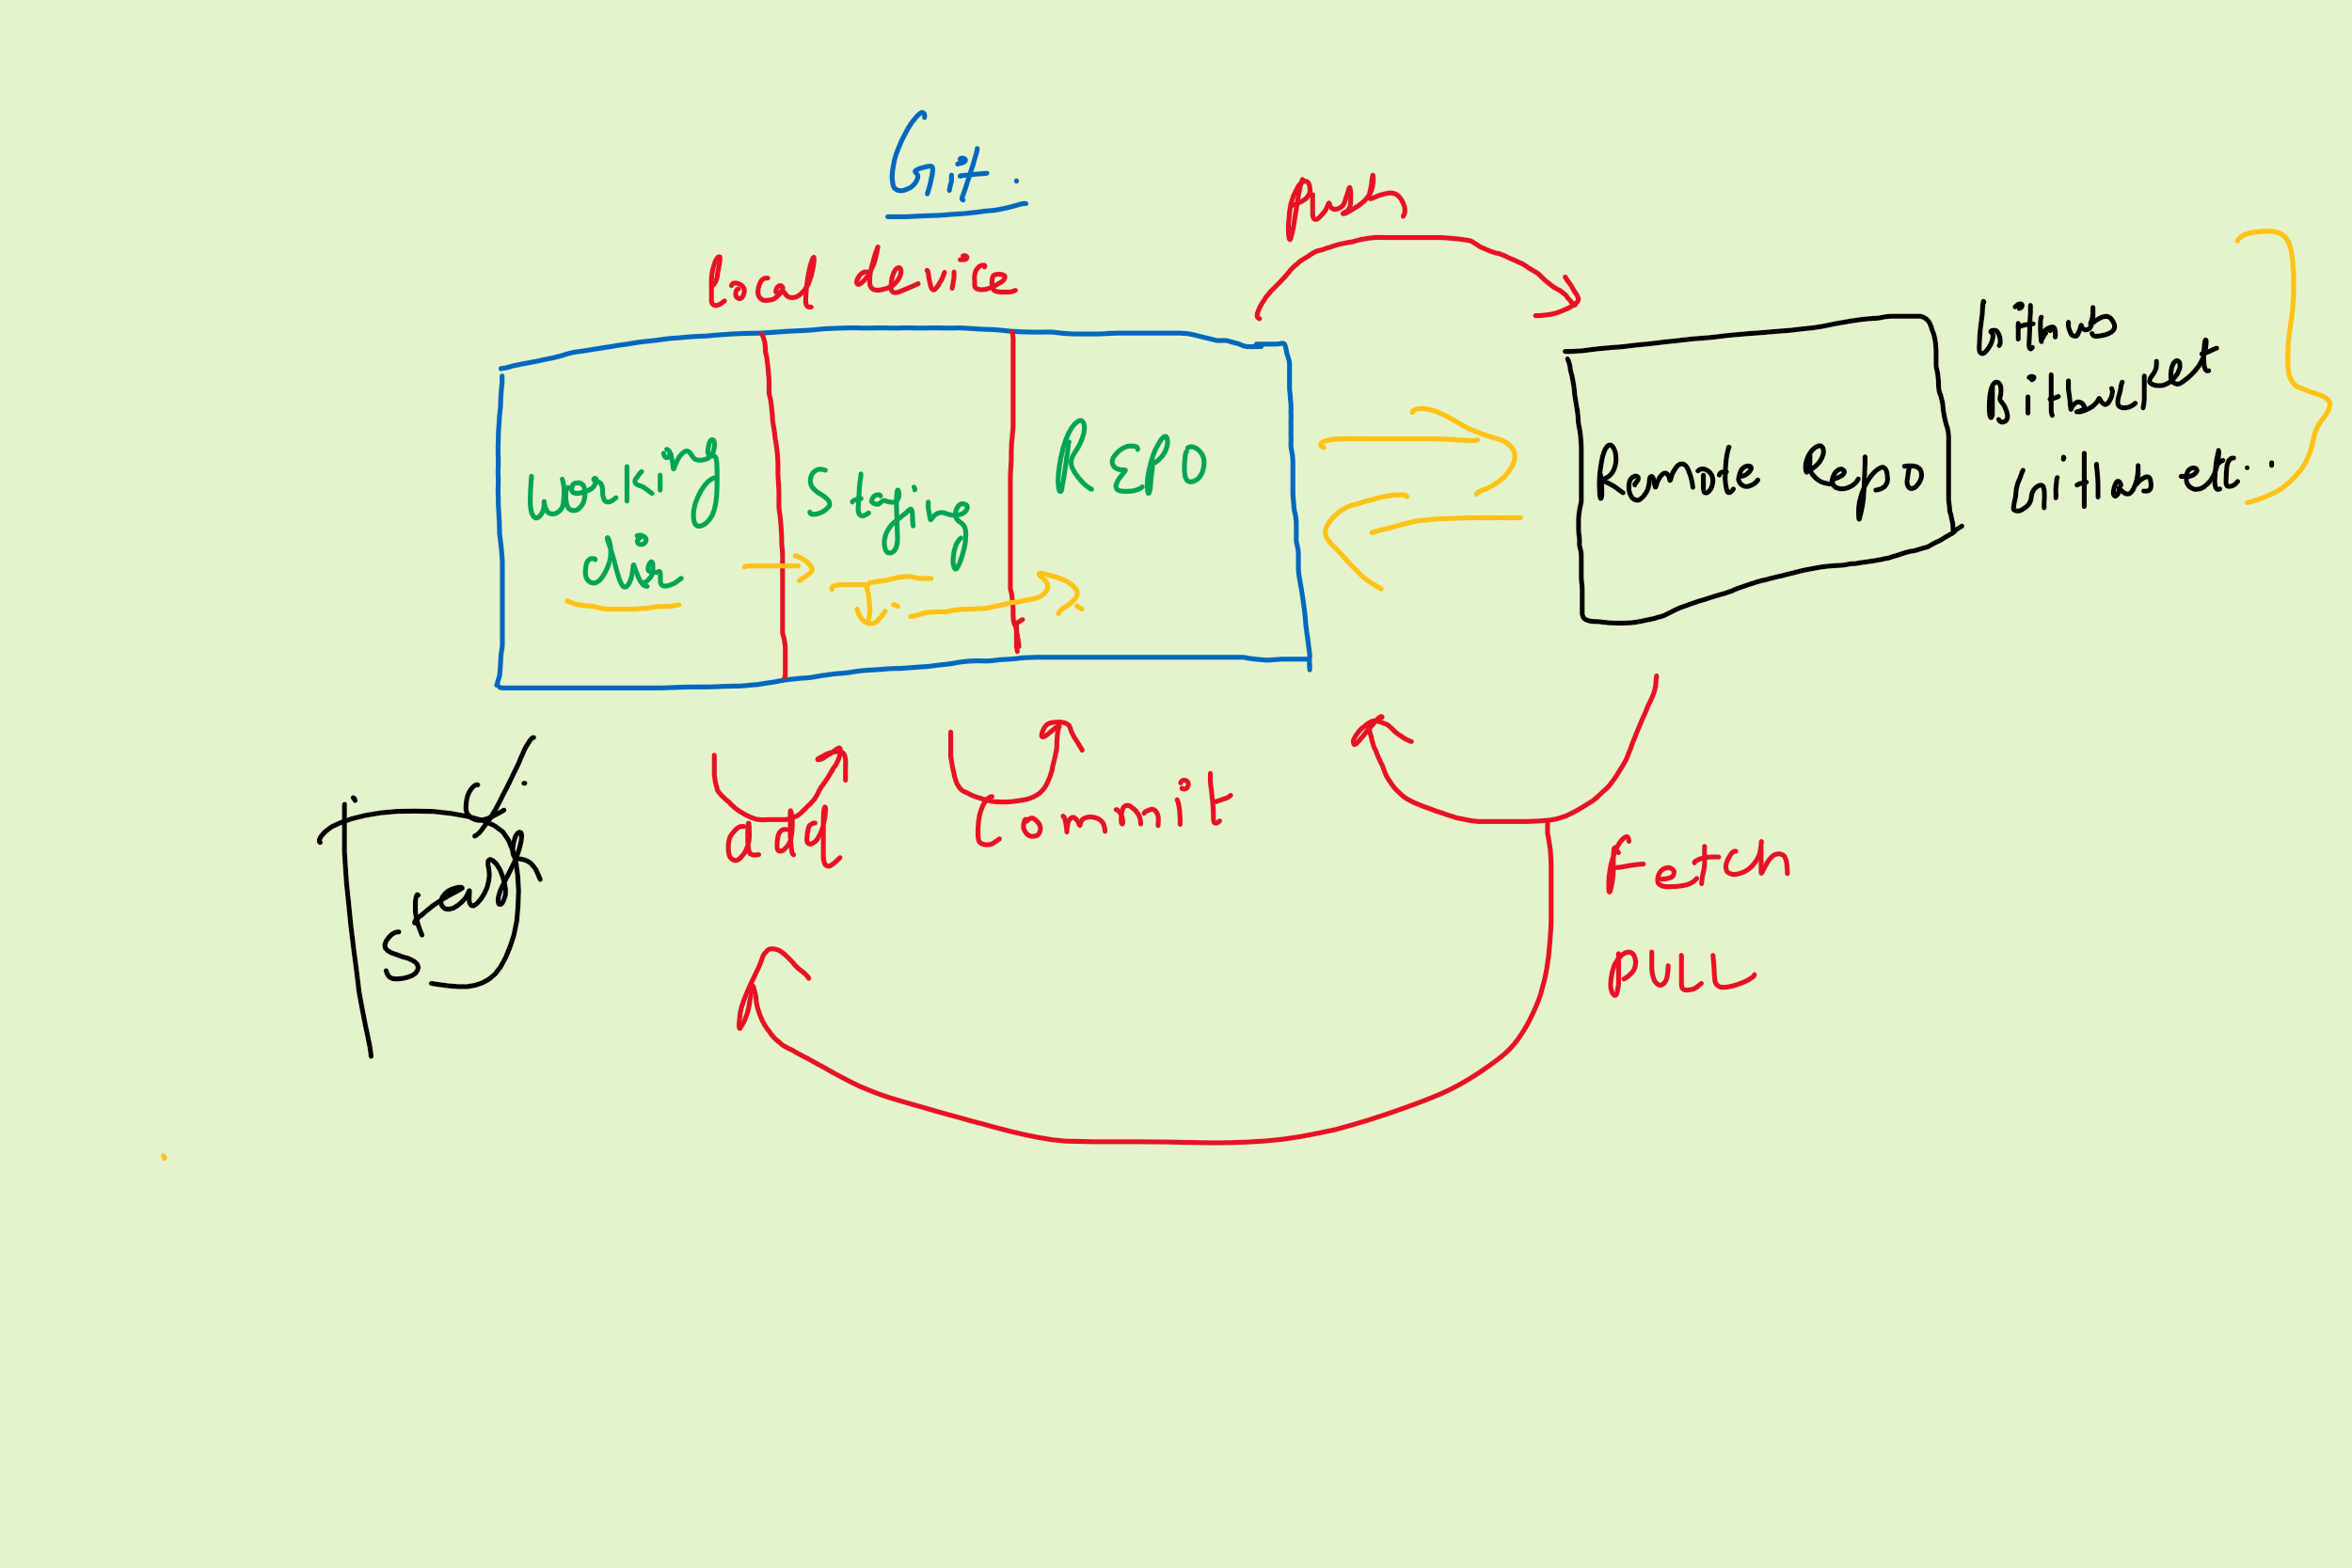 Git.
local device
push
Working
dir
Staging
REPO
Remote Repo
Github
Bitbucket
Gitlab etc..
add
Commit
Fetch
PULL